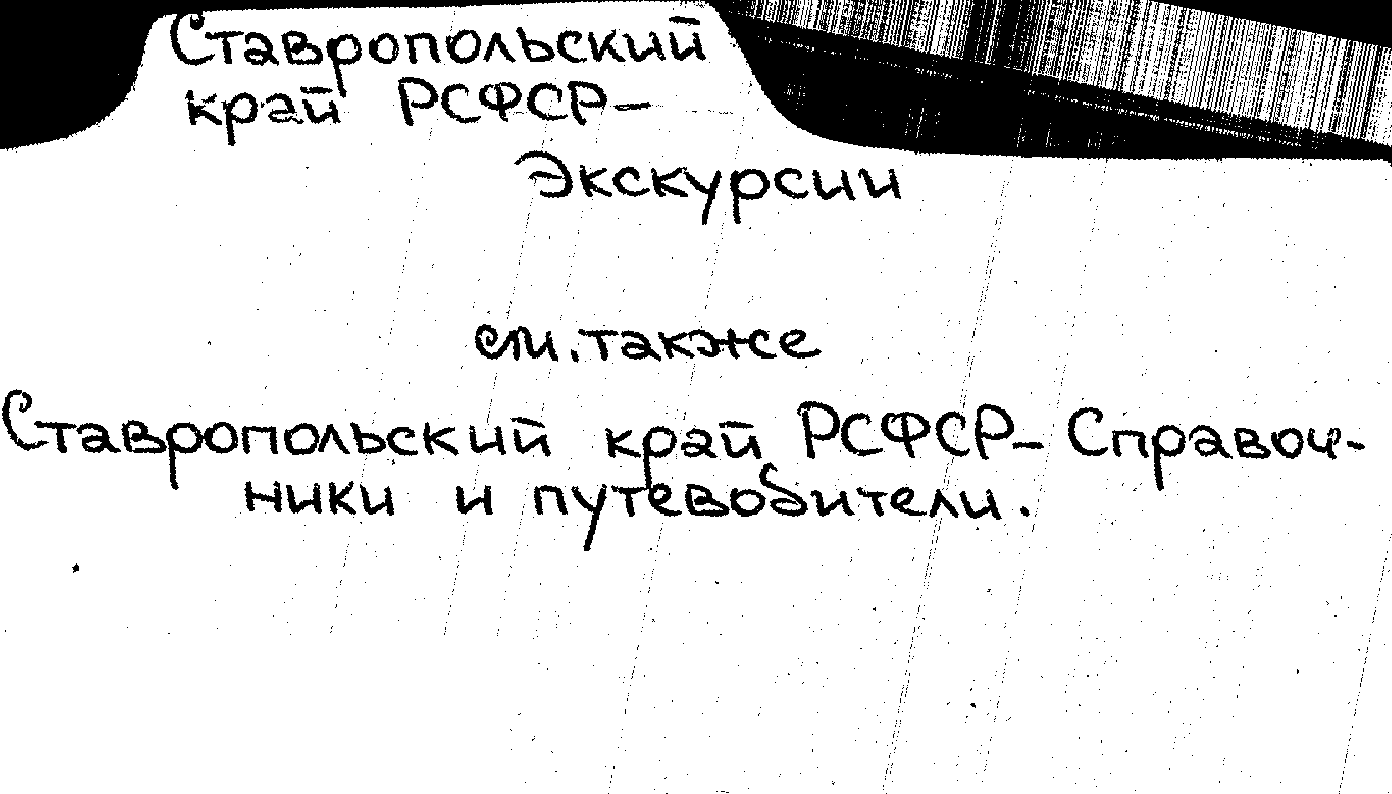 Ставропольский
край РСФСР-
Экскурсии
см. также
Ставропольский край РСФСР- Справоч-
ники и путеводители.